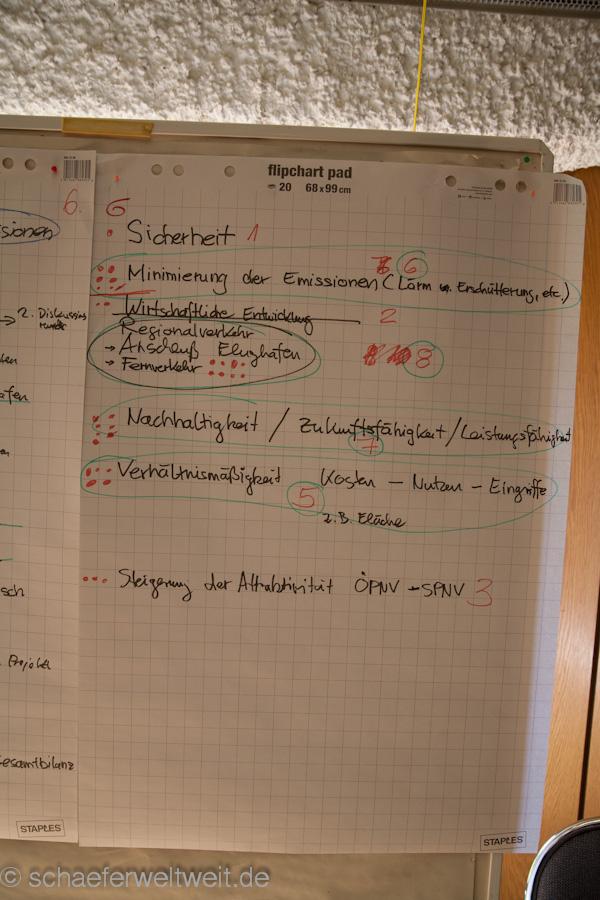 flipchart pad
20 68 x 99 cm
6.
6
Sicherheit 1
Minimierung der Emissionen (Lärm Erschütterung, etc.) 6
Wirtschaftliche Entwicklung 2
Regionalverkehr
→ Anschluß Flughafen 8
→ Fernverkehr
Nachhaltigkeit / Zukunftsfähigkeit / Leistungsfähigkeit
7
Verhältnismäßigkeit Kosten – Nutzen – Eingriffe
5
z.B. Fläche
Steigerung der Attraktivität ÖPNV – SPNV 3
→ 2. Diskussions
runde
Projekte
Gesamtbilanz
STAPLES
STAPLES
© schaeferweltweit.de